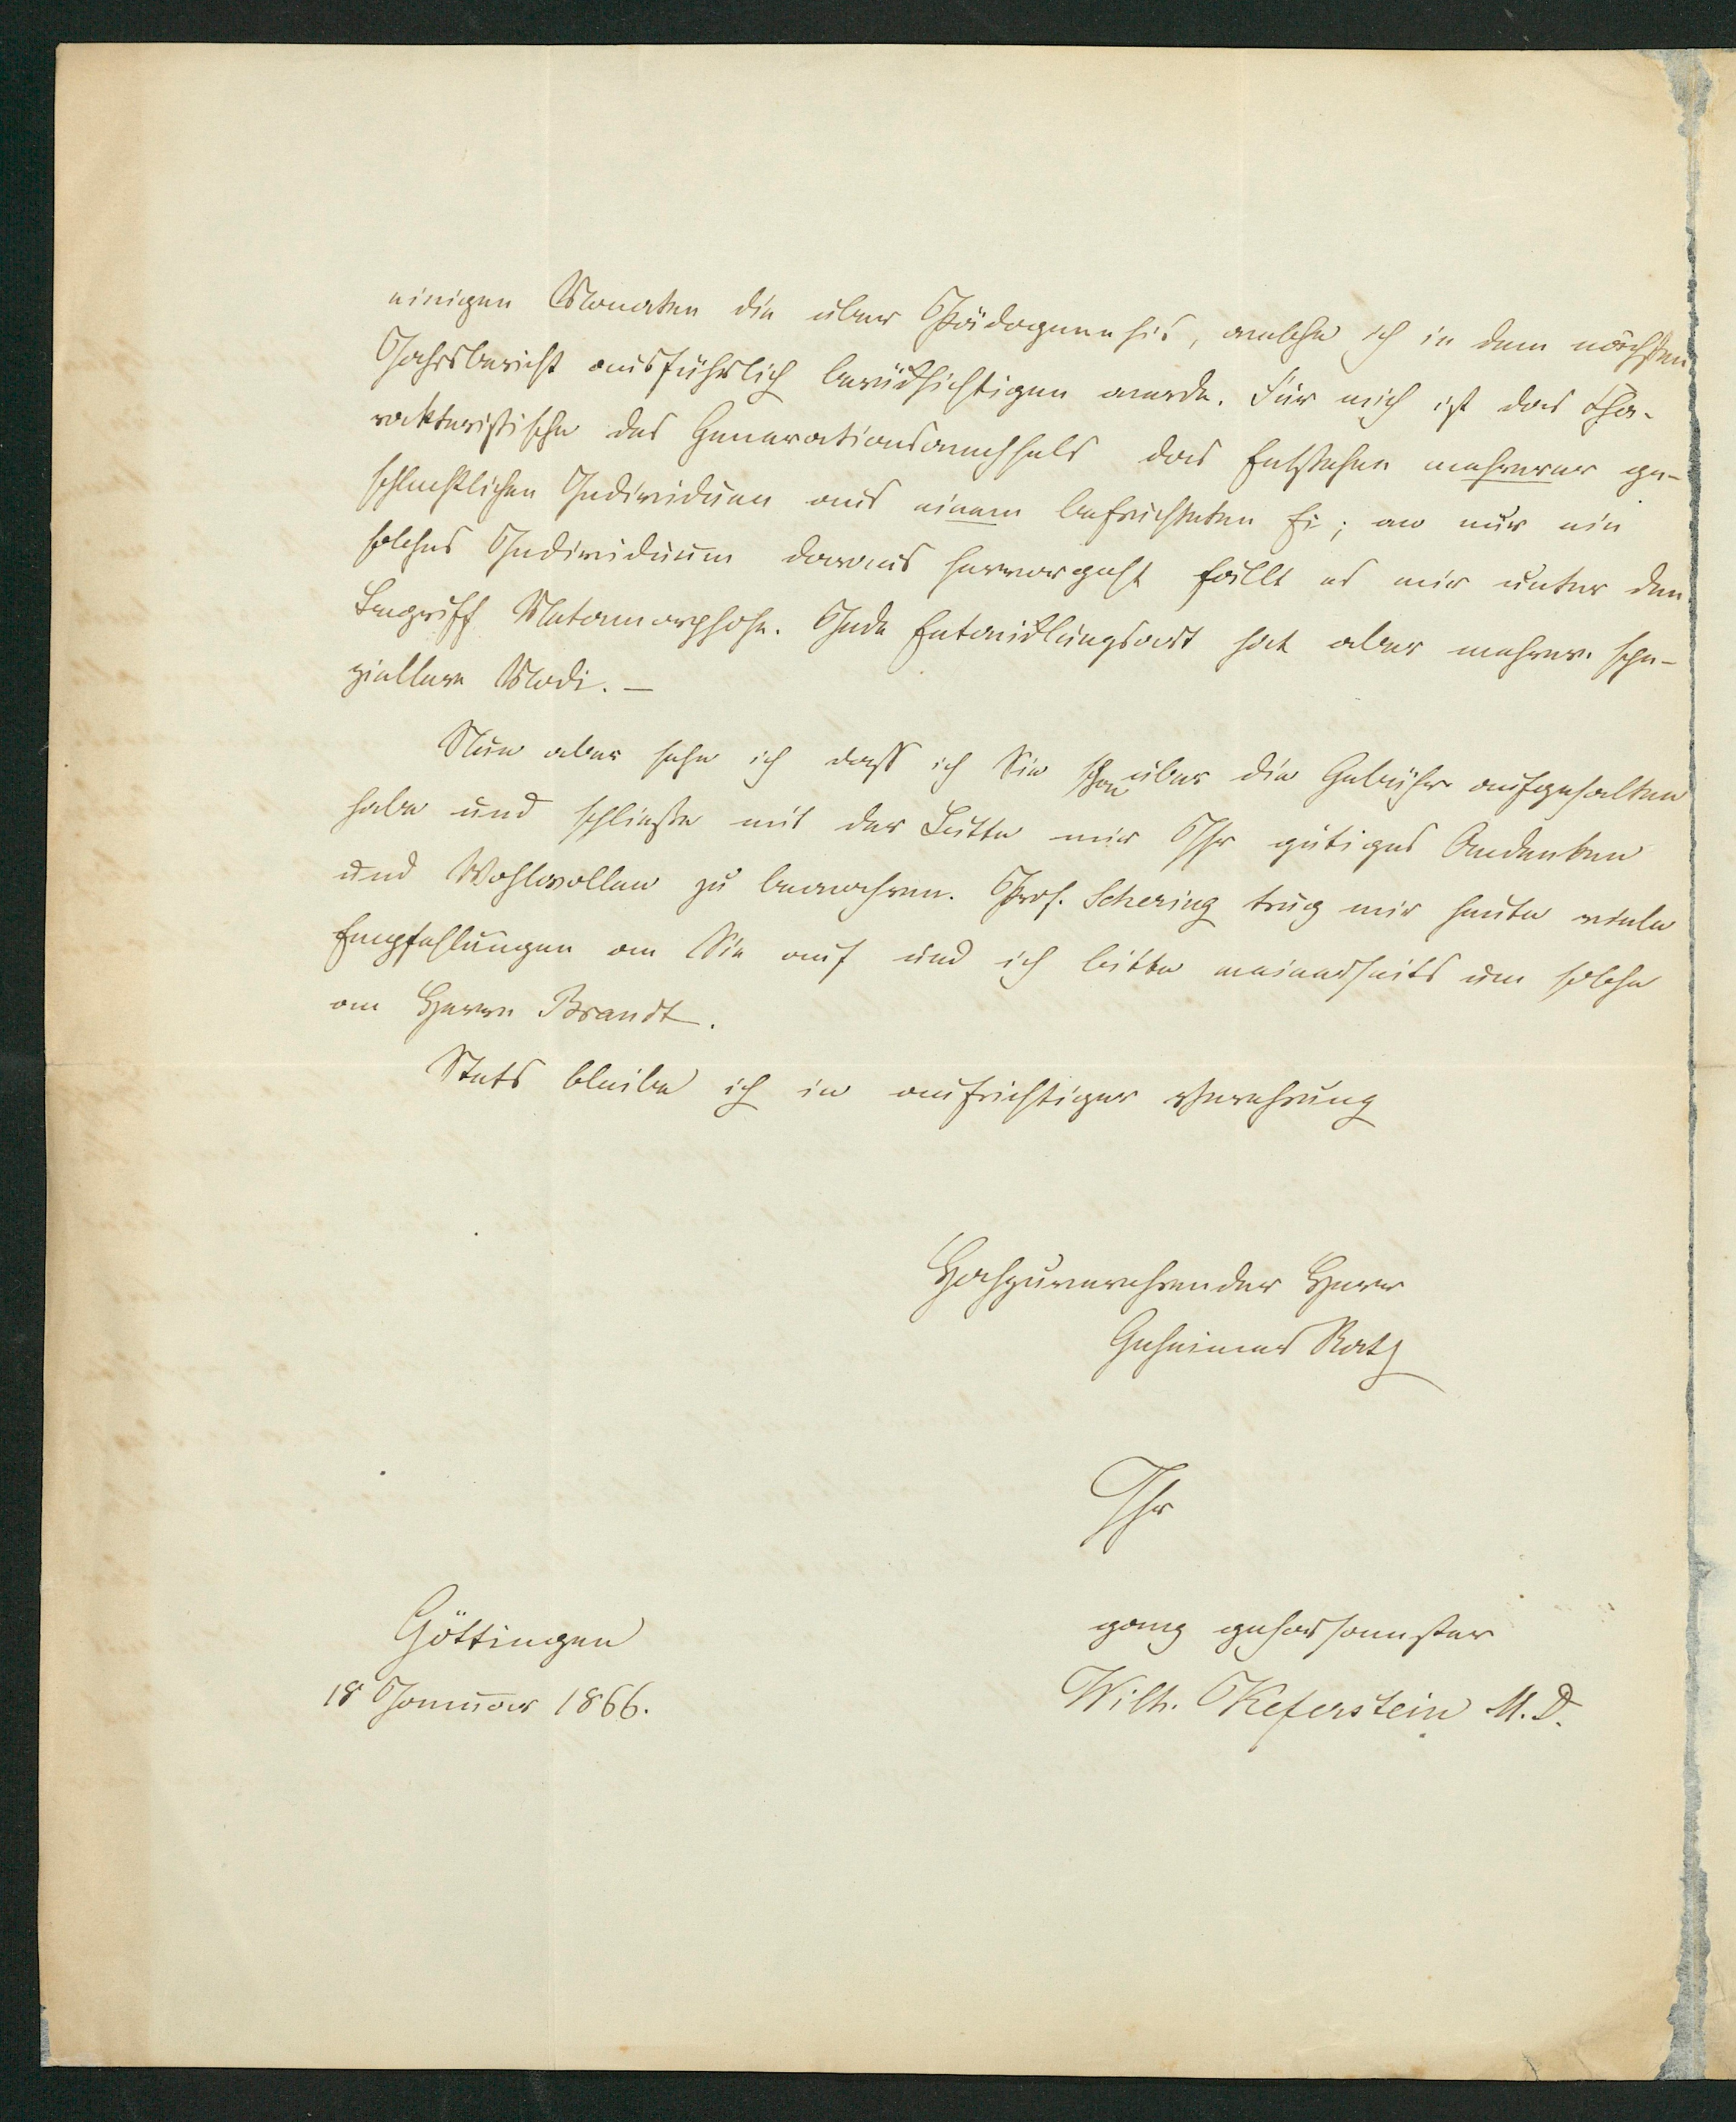 einigen Monaten die über Pädogenesis, welche ich in dem nächsten
Jahrsbericht ausführlich berücksichtigen werde. Für mich ist das Cha-
rakteristische des Generationswechsels das Entstehen mehrerer ge-
schlechtlichen Individuen aus einem befruchteten Ei; wo nur ein
solches Individuum daraus hervorgeht fällt es mir unter den
Begriff Metamorphose. Jede Entwicklungsart hat aber mehrere spe-
ziellere Modi. —
Nun aber sehe ich dass ich Sie schon über die Gebühr aufgehalten
habe und schließe mit der Bitte mir Ihr gütiges Andenken
und Wohlwollen zu bewahren. Prof. Schering trug mir heute viele
Empfehlungen an Sie auf und ich bitte meinerseits um solche
an Herrn Brandt.
Stets bleibe ich in aufrichtiger Verehrung
Hochzuverehrender Herr
Geheimer Rath
Ihr
ganz gehorsamster
Wilh. Keferstein M.D.
Göttingen
18 Januar 1866.